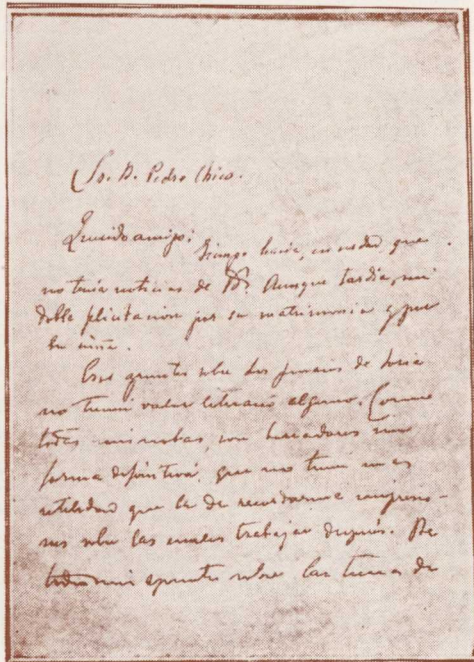 Sr. D. Pedro Chico.
Querido amigo: Tiempo hacía, en verdad que
no tenía noticias de Vd. Aunque tardía, mi
doble felicitación por su matrimonio y por
su niña.
Esos apuntes sobre los de Soria
no tienen valor literario alguno. Como
todas mis notas, son borradores sin
forma definitiva, que no tienen mas
utilidad que la de recordarme impresio-
nes sobre las cuales trabajar después. De
todos mis apuntes sobre las tierras de